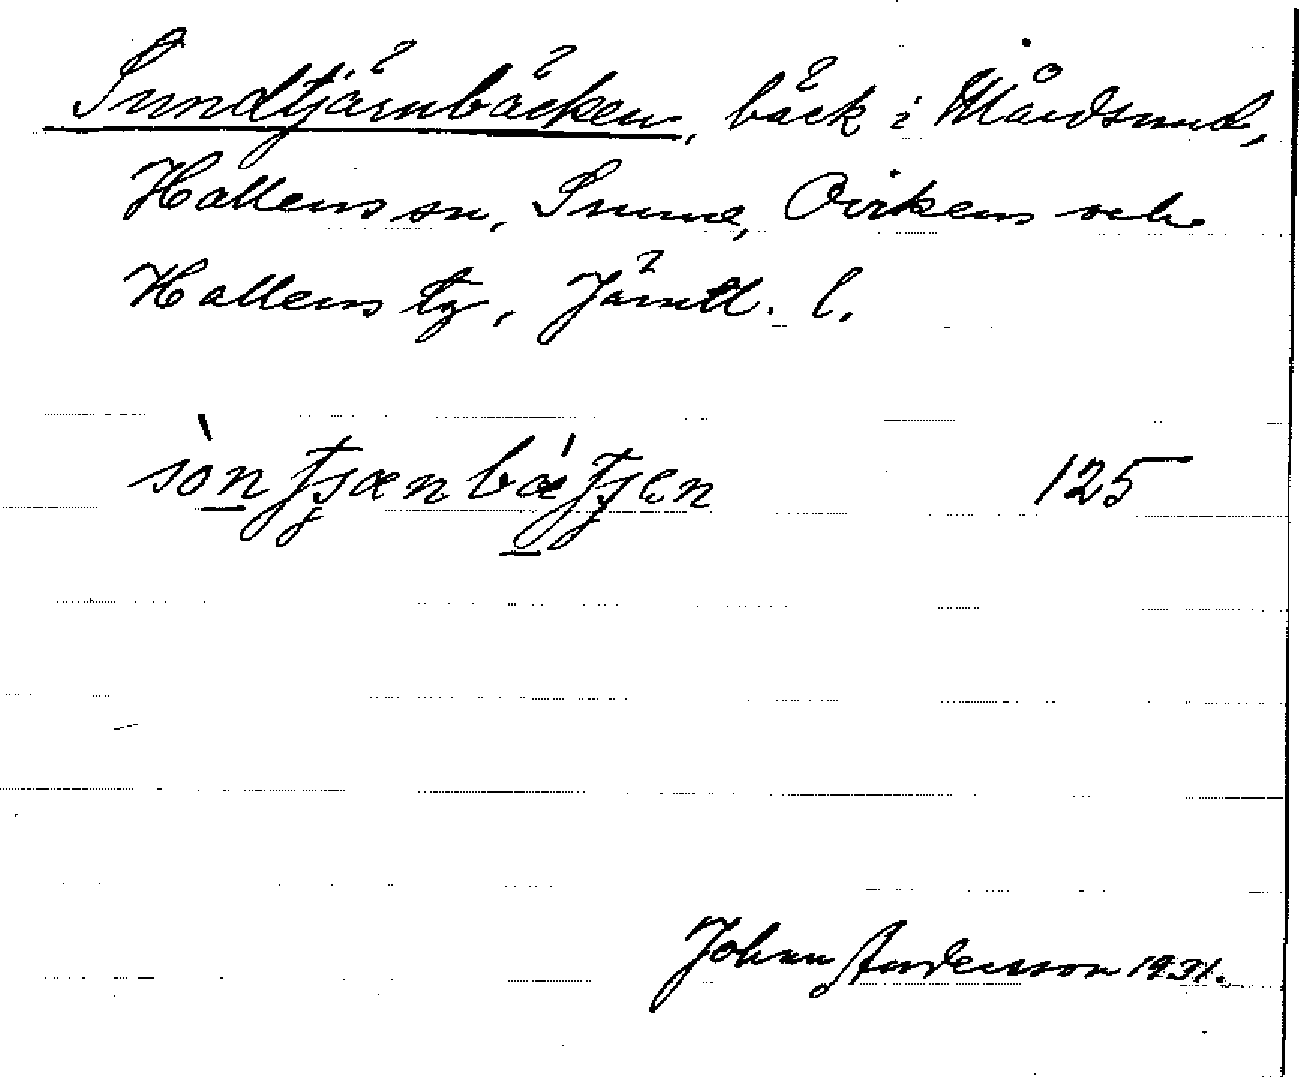 Sundtjärnbäcken, bäck i Mårdsund,
Hallens sn, Sunne, Ovikens och
Hallens tg, Jämtl. l.
125
Johan Andersson 1931.